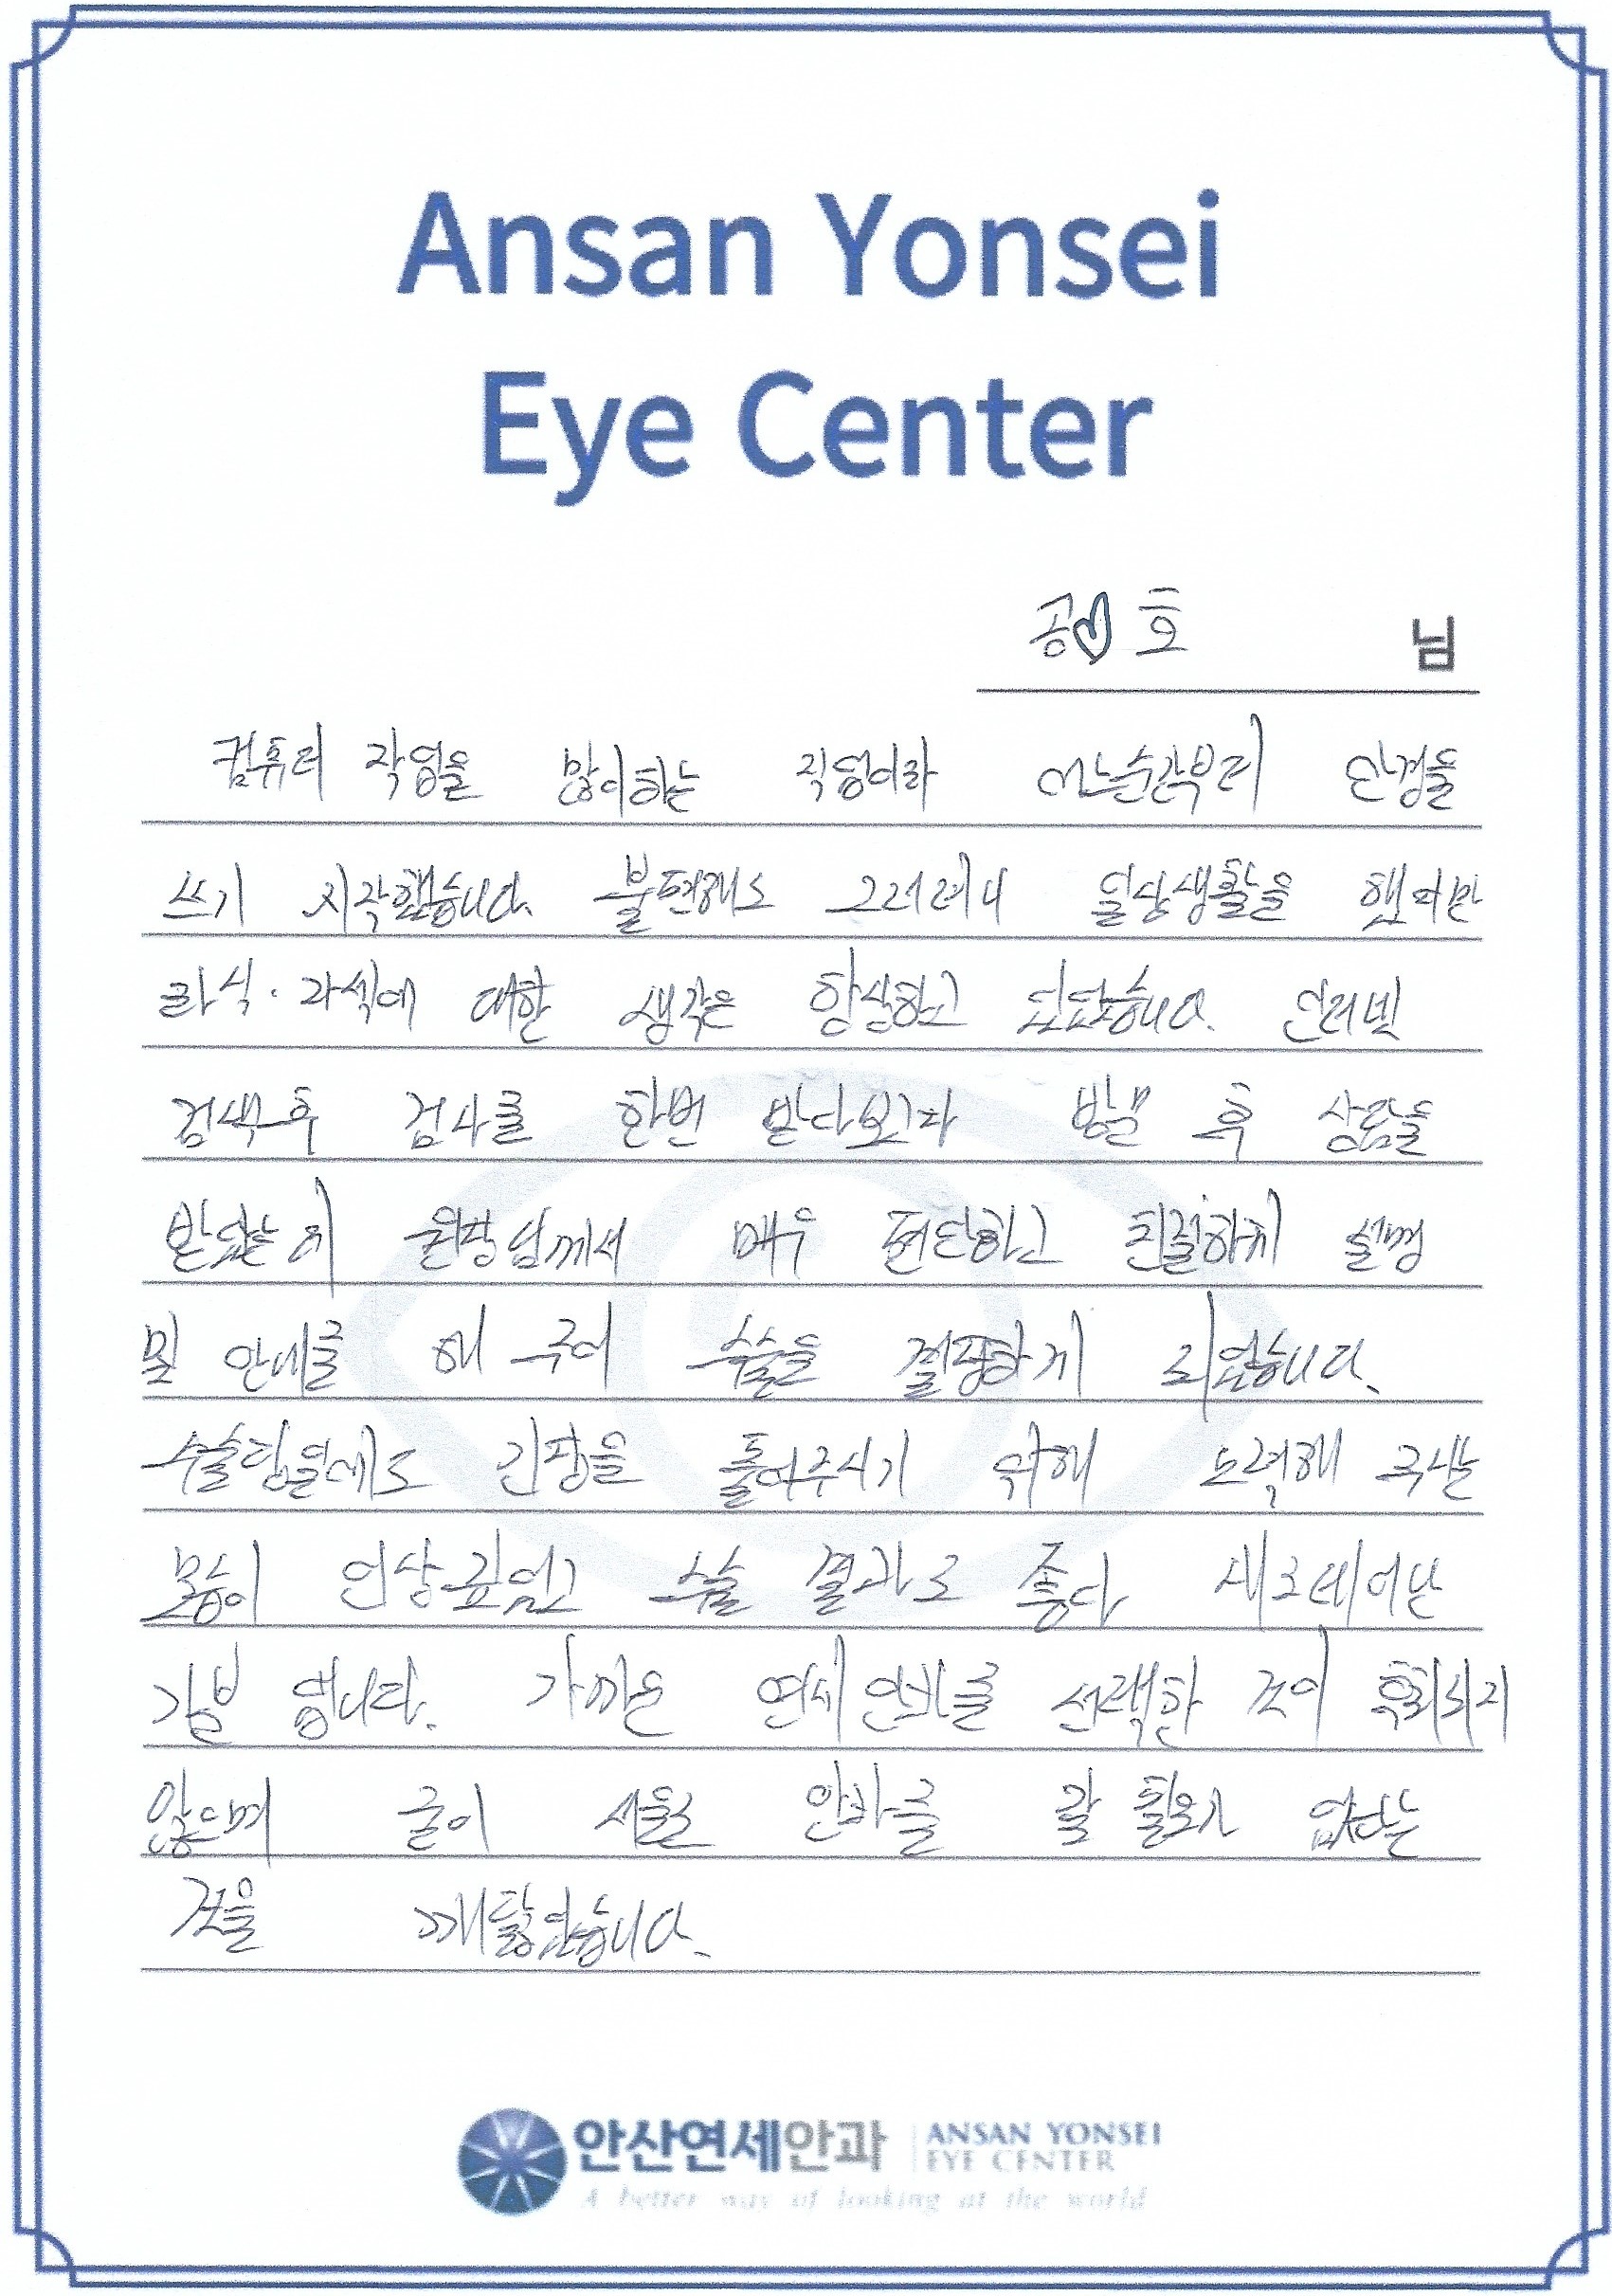 Ansan Yonsei
Eye Center
공♡호 님
컴퓨터 작업을 많이하는 직업이라 어느순간부터 안경을
쓰기 시작했습니다. 불편해도 그러려니 일상생활을 했지만
라식·라섹에 대한 생각은 항상하고 있었습니다. 인터넷
검색후 검사를 한번 받아보고자 방문 후 상담을
받았는데 원장님께서 매우 편안하고 친절하게 설명
및 안내를 해 주어 수술을 결정하게 되었습니다.
수술당일에도 긴장을 풀어주시기 위해 노력해 주시는
모습이 인상깊었고 수술 결과도 좋아 새로태어난
기분 입니다. 가까운 연세안과를 선택한 것이 후회되지
않으며 굳이 서울로 안과를 갈 필요가 없다는
것을 깨달았습니다.
안산연세안과 ANSAN YONSEI
EYE CENTER
A better way of looking at the world